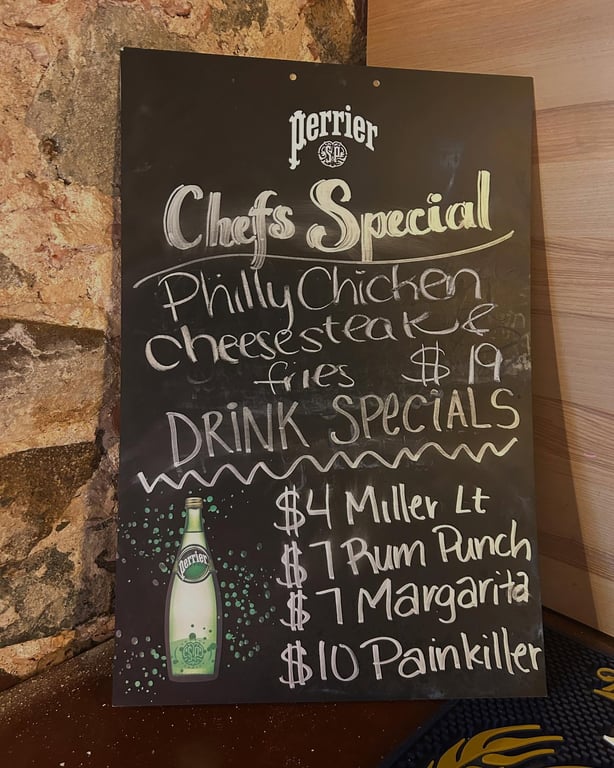 perrier
Chefs Special
Philly Chicken
Cheesesteak &
fries $19
DRINK SPECIALS
$4 Miller Lt
$7 Rum Punch
$7 Margarita
$10 Painkiller
perrier